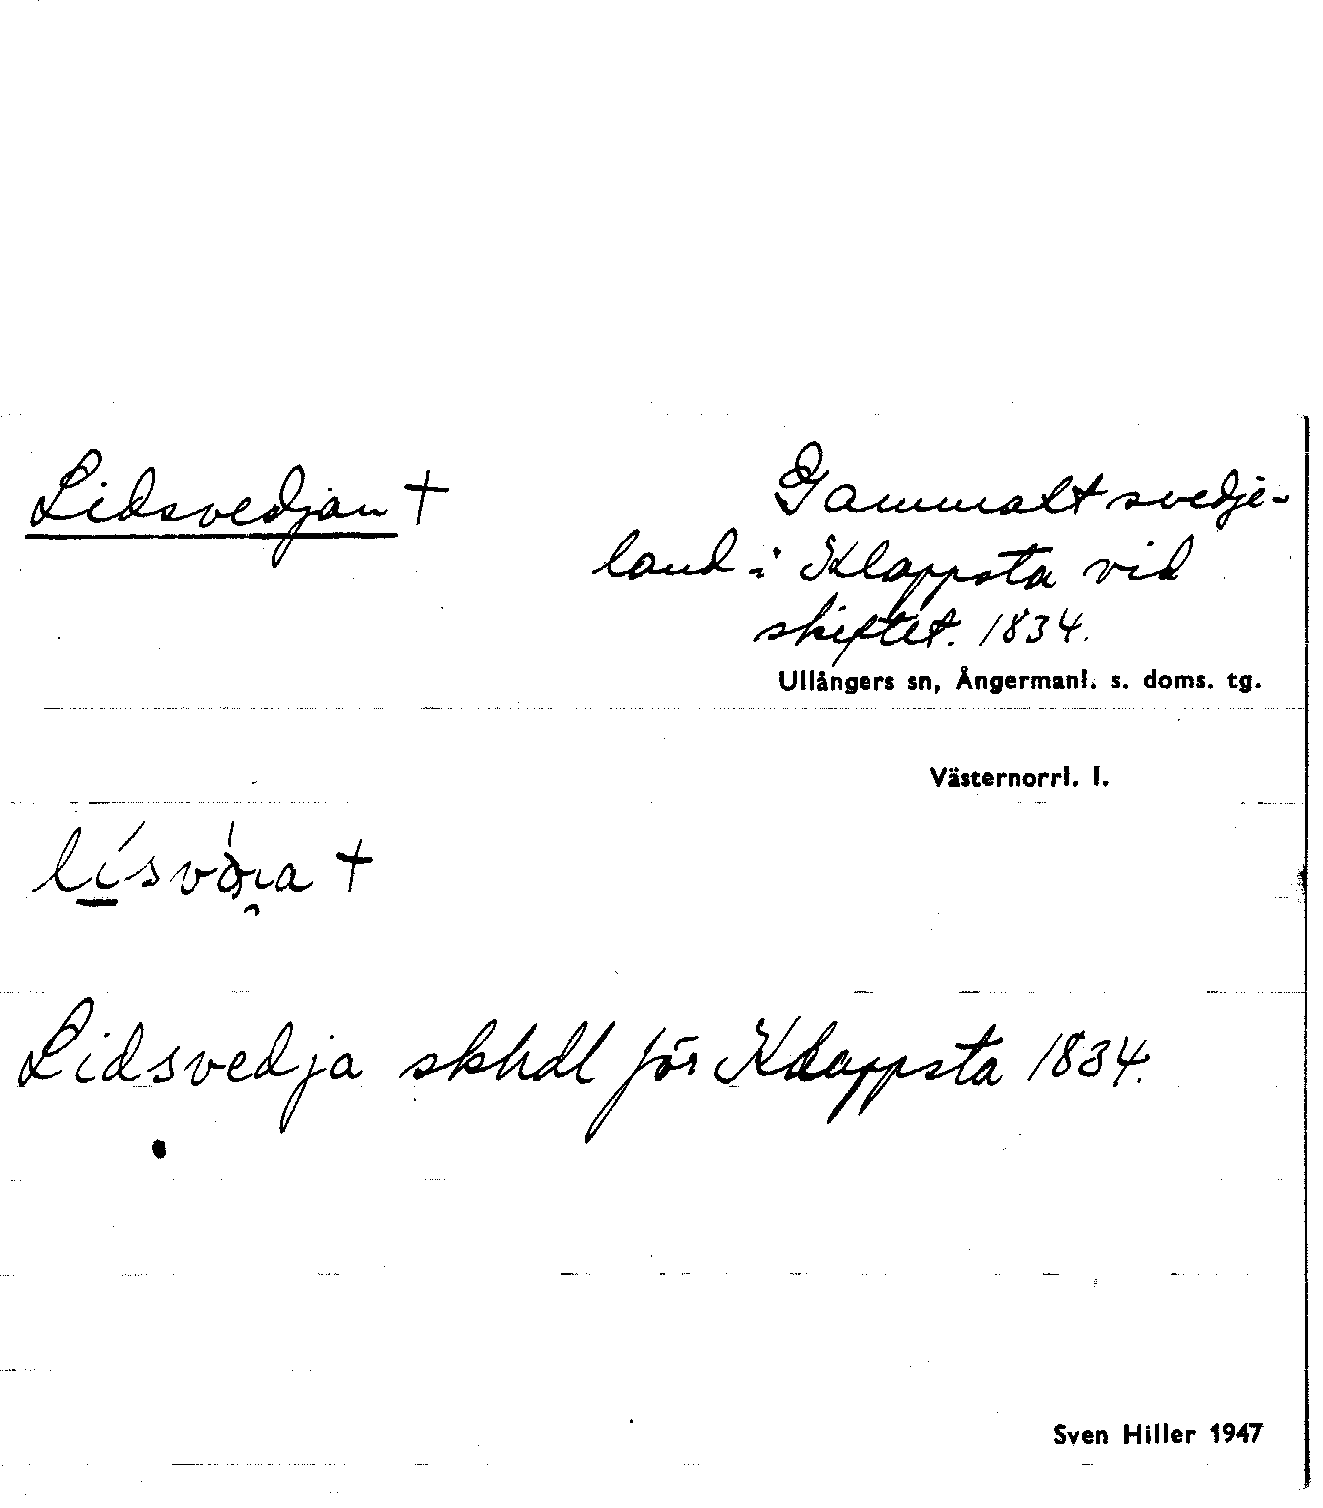 Lidsvedjan †
Gammalt svedje-
land i Klappsta vid
skiftet. 1834.
Ullångers sn, Ångermanl. s. doms. tg.
Västernorrl. l.
Lidsvedja skhdl för Klappsta 1834.
Sven Hiller 1947